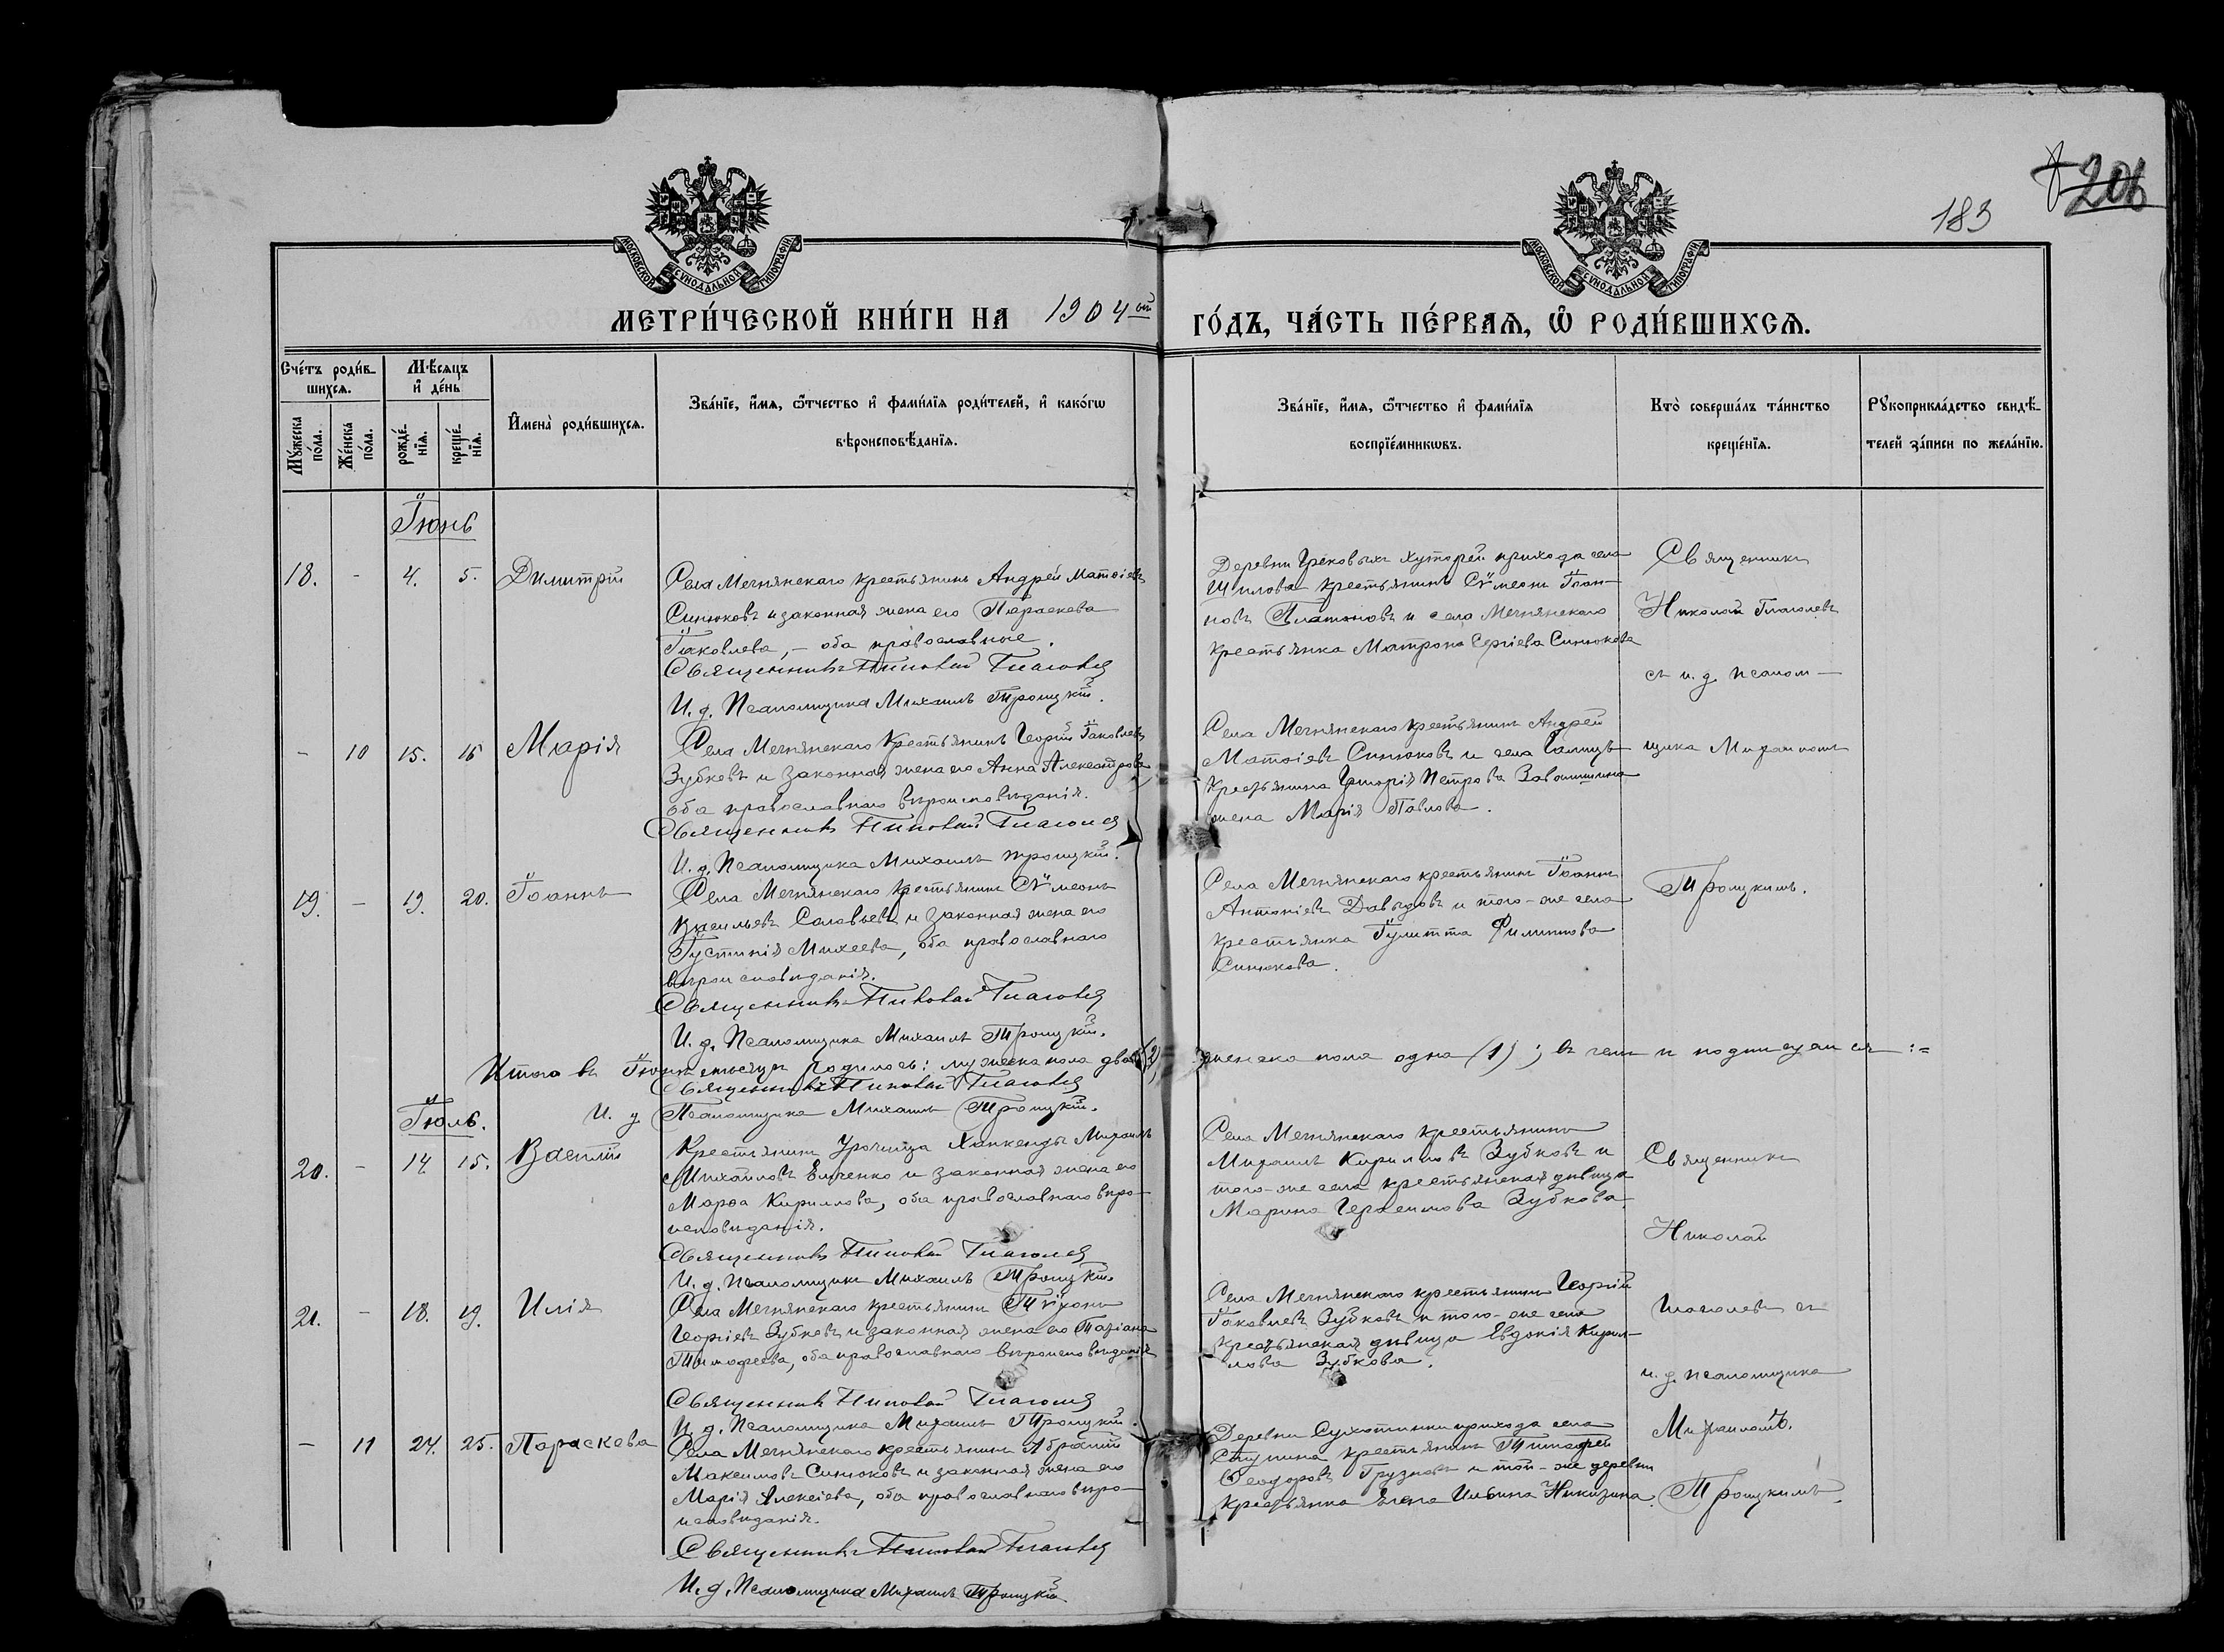 206
183
МОСКОВСКОЙ СѴНОДАЛЬНОЙ ТИПОГРАФІИ
МОСКОВСКОЙ СѴНОДАЛЬНОЙ ТИПОГРАФІИ
МЕТРИ́ЧЕСКОЙ КНИ́ГИ НА 1904ый ГО́ДЪ, ЧА́СТЬ ПЕ́РВАѦ, Ѡ РОДИ́ВШИХСѦ.
Сче́тъ роди́в-
шихсѧ.
Мѣ́сѧцъ
и де́нь
Му́жеска
по́ла.
Же́нска
по́ла.
рожде́-
нїѧ.
креще́-
нїѧ.
Имена̀ роди́вшихсѧ.
Зва́нїе, и́мѧ, ѻ́тчество и фами́лїѧ роди́телей, и како́гѡ
вѣроисповѣ́данїѧ.
Зва́нїе, и́мѧ, ѻ́тчество и фами́лїѧ
воспрїе́мникѡвъ.
Кто̀ соверша́лъ та́инство
креще́нїѧ.
Рꙋкоприкла́дство свидѣ́-
телей за́писи по жела́нїю.
Іюнь
18. - 4. 5. Димитрій
Села Мечнянскаго крестьянинъ Андрей Матѳіевъ
Синюковъ и законная жена его Параскева
Іаковлева, - оба православные.
Священникъ Николай Глаголев
И. д. Псаломщика Михаилъ Троицкій.
Деревни Грековыхъ Хуторей прихода села
Шилова крестьянинъ Сѵмеонъ Іоан-
новъ Платоновъ и села Мечнянскаго
крестьянка Матрона Сергіева Синюкова
Священникъ
Николай Глаголевъ
съ и. д. псалом-
щика Михаиломъ
Троицкимъ.
- 10 15. 16 Марія
Села Мечнянскаго крестьянинъ Георгій Іаковлевъ
Зубковъ и законная жена его Анна Александрова
оба православнаго вѣроисповѣданія.
Священникъ Николай Глаголев
И. д. Псаломщика Михаилъ Троицкій.
Села Мечнянскаго крестьянинъ Андрей
Матѳіевъ Синюковъ и села
крестьянина Григорія Петрова
жена Марія Павлова.
19. - 19. 20. Іоаннъ
Села Мечнянскаго крестьянинъ Сѵмеонъ
Васильевъ Соловьевъ и законная жена его
Іустинія Михеева, оба православнаго
вѣроисповѣданія.
Священникъ Николай Глаголев
И. д. Псаломщика Михаилъ Троицкій.
Села Мечнянскаго крестьянинъ Іоаннъ
Антоніевъ Давыдовъ и того-же села
крестьянка Іулитта Филиппова
Синюкова.
Итого въ Іюнѣ мѣсяцѣ родилось: мужеска пола два (2), женска пола одна (1); въ чемъ и подписуемся :=
Священникъ Николай Глаголев
И. д. Псаломщика Михаилъ Троицкій.
Іюль.
20. - 14. 15. Василій
Крестьянинъ Урочища Ханкенды Михаилъ
Михайловъ Ельченко и законная жена его
Марѳа Кириллова, оба православнаго вѣро-
исповѣданія.
Священникъ Николай Глаголев
И. д. Псаломщика Михаилъ Троицкій.
Села Мечнянскаго крестьянинъ
Михаилъ Кирилловъ Зубковъ и
того-же села крестьянская дѣвица
Марина Герасимова Зубкова.
Священникъ
Николай
Глаголевъ съ
и. д. псаломщика
Михаиломъ
Троицкимъ.
21. - 18. 19. Илія
Села Мечнянскаго крестьянинъ Тѵхонъ
Георгіевъ Зубковъ и законная жена его Татіана
Тимофеева, оба православнаго вѣроисповѣданія
Священникъ Николай Глаголев
И. д. Псаломщика Михаилъ Троицкій.
Села Мечнянскаго крестьянинъ Георгій
Іаковлевъ Зубковъ и того-же села
крестьянская дѣвица Евдокія Кирил-
лова Зубкова.
- 11 24. 25. Параскева
Села Мечнянскаго крестьянинъ Аврамій
Максимовъ Синюковъ и законная жена его
Марія Алексіева, оба православнаго вѣро-
исповѣданія.
Священникъ Николай Глаголев
И. д. Псаломщика Михаилъ Троицкій
Деревни Сухотинки прихода села
Ступина крестьянинъ Тимофей
Ѳеодоровъ Грузновъ и той-же деревни
крестьянка Елена Ильина Никизина.